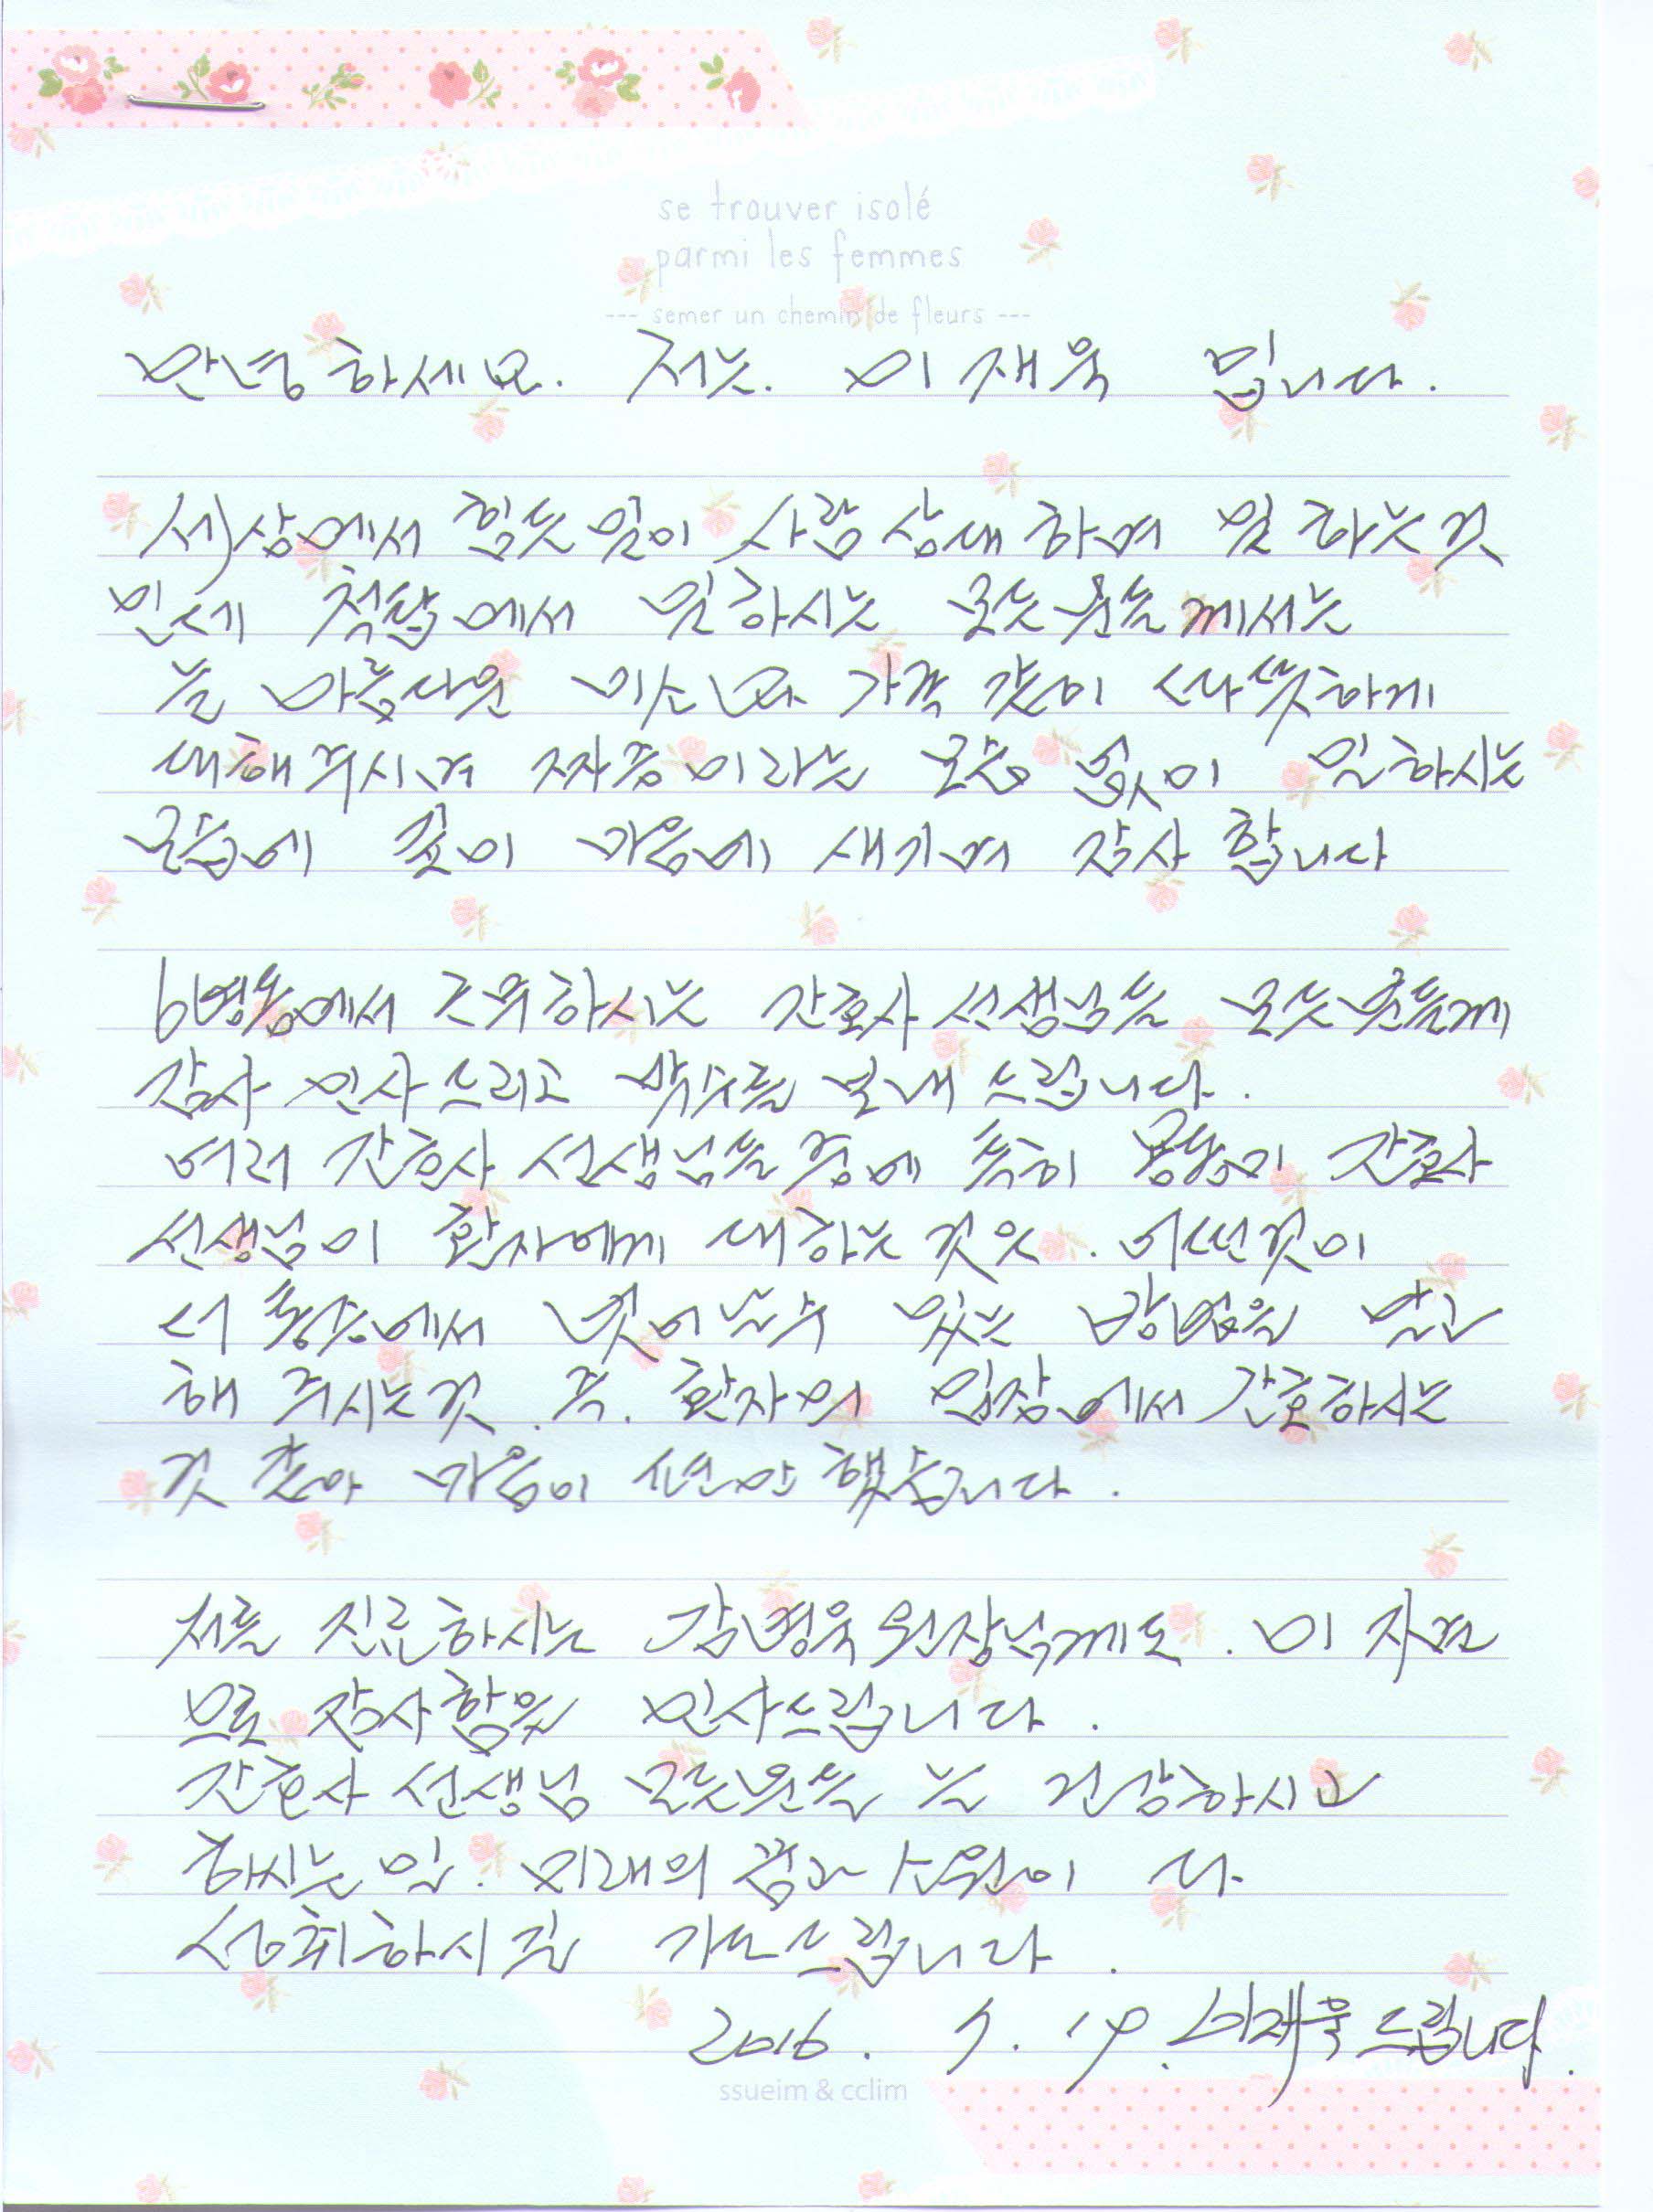 se trouver isolé
parmi les femmes
--- semer un chemin de fleurs ---
안녕하세요. 저는. 이재욱 입니다.
세상에서 힘든일이 사람상대하며 일하는것
인데 척탑에서 일하시는 모든분들께서는
늘 아름다운 미소로 가족 같이 따뜻하게
대해주시며 짜증이라는 모습 없이 일하시는
모습에 깊이 마음에 새기며 감사 합니다
6병동에서 근무하시는 간호사선생님들 모든분들께
감사 인사드리고 박수를 보내 드립니다.
여러 간호사 선생님들중에 특히 간호사
선생님이 환자에게 대하는 것은. 어떤것이
더 통증에서 벗어날수 있는 방법을 말
해 주시는것. 즉. 환자의 입장에서 간호하시는
것 같아 마음이 편안했습니다.
저를 진료하시는 김병욱원장님께도. 이 지면
으로 감사함을 인사드립니다.
간호사 선생님 모든분들 늘 건강하시고
하시는일. 미래의 꿈과 소원이 다
성취하시길 기도드립니다.
2016. 7. 14. 이재욱드립니다.
ssueim & cclim